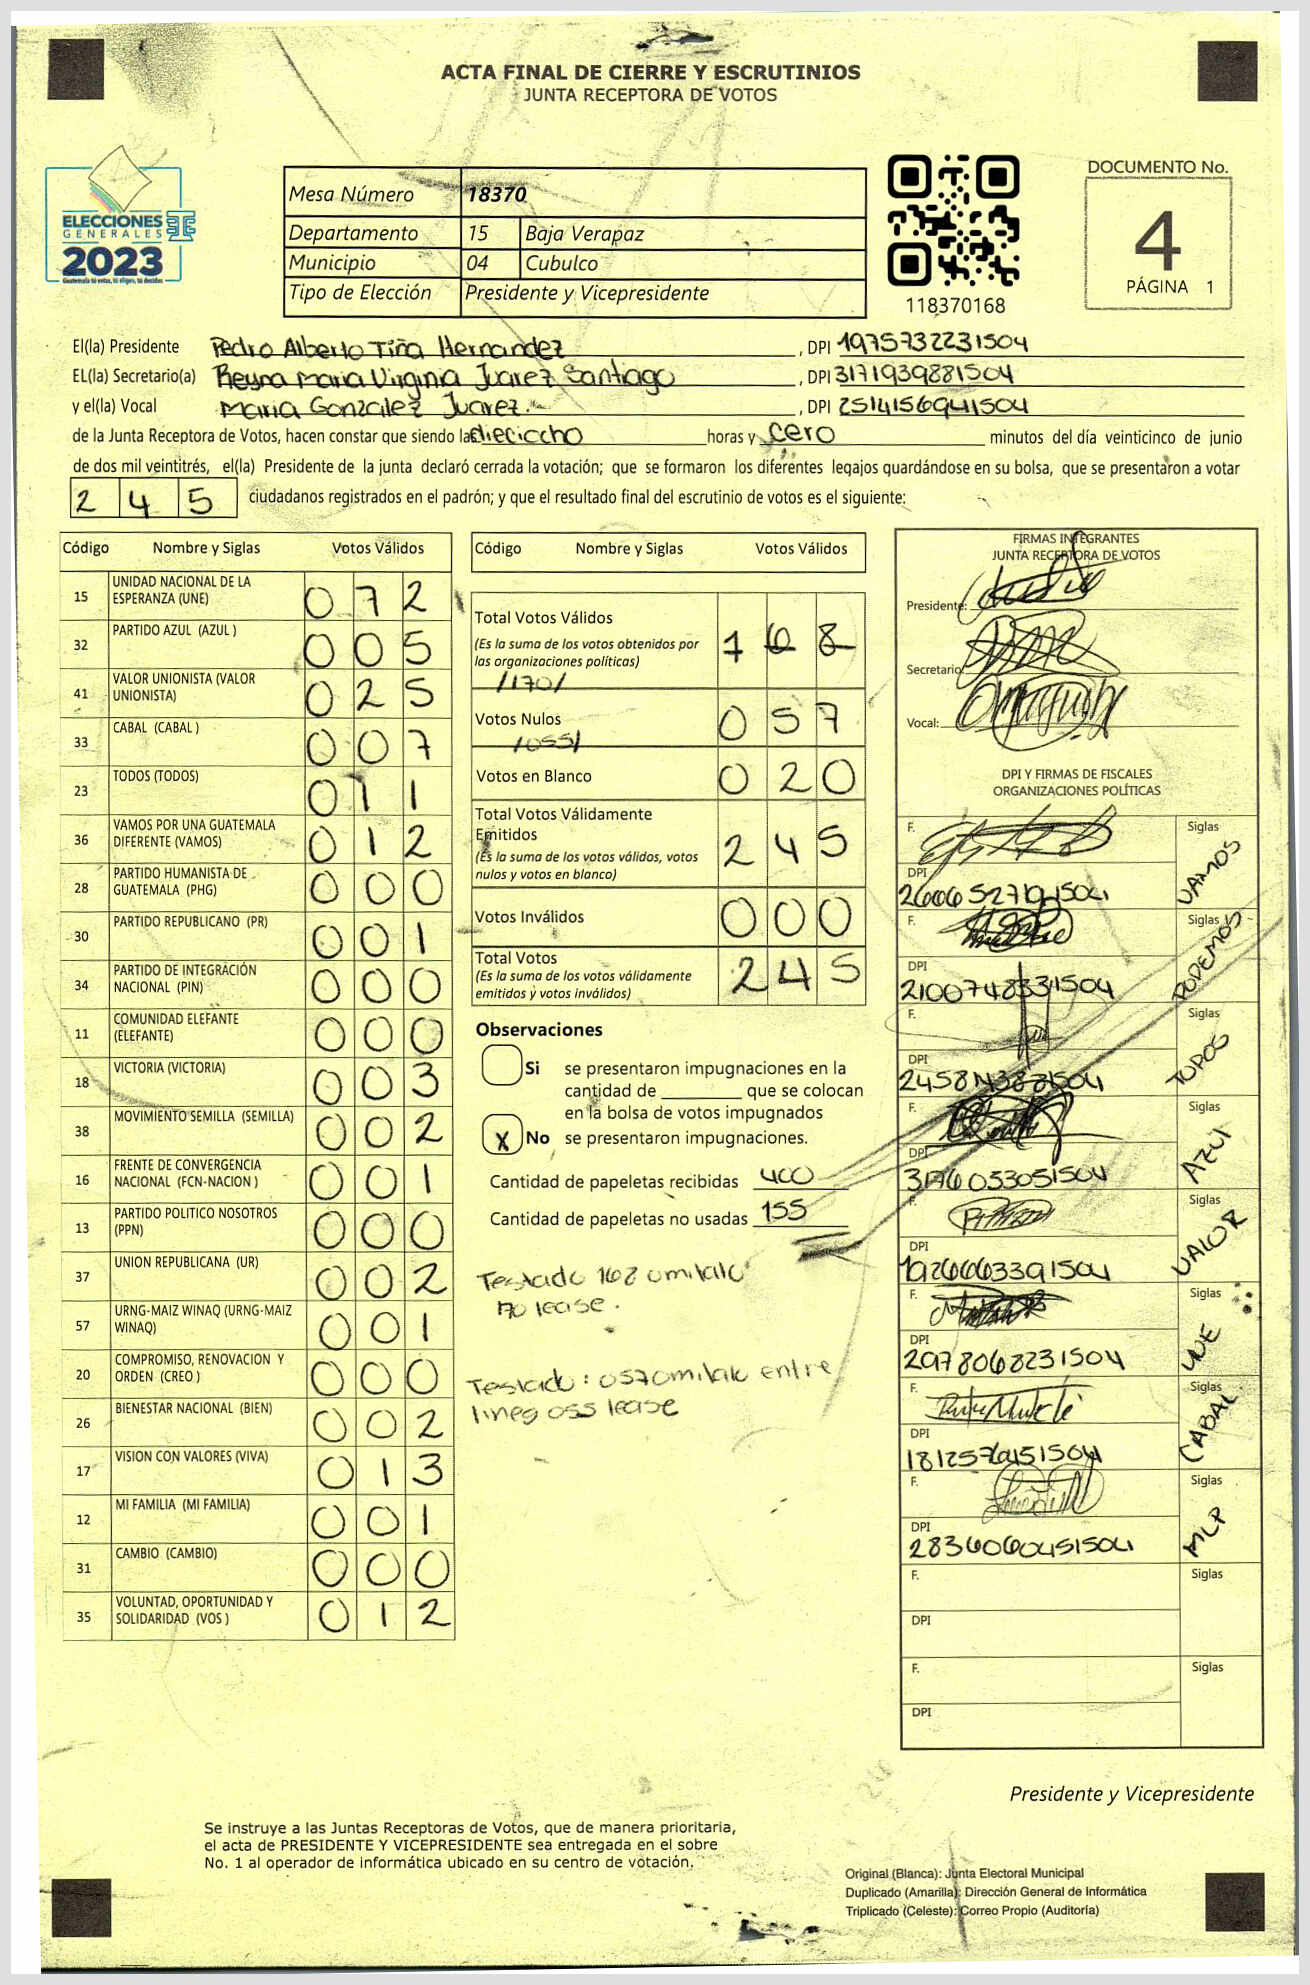 ACTA FINAL DE CIERRE Y ESCRUTINIOS
JUNTA RECEPTORA DE VOTOS
ELECCIONES
GENERALES
2023
Guatemala tú votas, tú eliges, tú decides
Mesa Número 18370
Departamento 15 Baja Verapaz
Municipio 04 Cubulco
Tipo de Elección Presidente y Vicepresidente
118370168
DOCUMENTO No.
4
PÁGINA 1
El(la) Presidente Pedro Alberto Tiña Hernandez, DPI 1975732231504
EL(la) Secretario(a) Reyna Maria Virginia Juarez Santiago, DPI 3171939881504
y el(la) Vocal Maria Gonzalez Juarez, DPI 2514156941504
de la Junta Receptora de Votos, hacen constar que siendo las dieciocho horas y cero minutos del día veinticinco de junio
de dos mil veintitrés, el(la) Presidente de la junta declaró cerrada la votación; que se formaron los diferentes legajos guardándose en su bolsa, que se presentaron a votar
245 ciudadanos registrados en el padrón; y que el resultado final del escrutinio de votos es el siguiente:
Código Nombre y Siglas Votos Válidos
15 UNIDAD NACIONAL DE LA ESPERANZA (UNE) 072
32 PARTIDO AZUL (AZUL ) 005
41 VALOR UNIONISTA (VALOR UNIONISTA) 025
33 CABAL (CABAL ) 007
23 TODOS (TODOS) 011
36 VAMOS POR UNA GUATEMALA DIFERENTE (VAMOS) 012
28 PARTIDO HUMANISTA DE GUATEMALA (PHG) 000
30 PARTIDO REPUBLICANO (PR) 001
34 PARTIDO DE INTEGRACIÓN NACIONAL (PIN) 000
11 COMUNIDAD ELEFANTE (ELEFANTE) 000
18 VICTORIA (VICTORIA) 003
38 MOVIMIENTO SEMILLA (SEMILLA) 002
16 FRENTE DE CONVERGENCIA NACIONAL (FCN-NACION ) 001
13 PARTIDO POLITICO NOSOTROS (PPN) 000
37 UNION REPUBLICANA (UR) 002
57 URNG-MAIZ WINAQ (URNG-MAIZ WINAQ) 001
20 COMPROMISO, RENOVACION Y ORDEN (CREO ) 000
26 BIENESTAR NACIONAL (BIEN) 002
17 VISION CON VALORES (VIVA) 013
12 MI FAMILIA (MI FAMILIA) 001
31 CAMBIO (CAMBIO) 000
35 VOLUNTAD, OPORTUNIDAD Y SOLIDARIDAD (VOS ) 012
Código Nombre y Siglas Votos Válidos
Total Votos Válidos 168
(Es la suma de los votos obtenidos por
las organizaciones políticas)
/170/
Votos Nulos 057
/055/
Votos en Blanco 020
Total Votos Válidamente
Emitidos 245
(Es la suma de los votos válidos, votos
nulos y votos en blanco)
Votos Inválidos 000
Total Votos 245
(Es la suma de los votos válidamente
emitidos y votos inválidos)
Observaciones
Si se presentaron impugnaciones en la
cantidad de ________ que se colocan
en la bolsa de votos impugnados
X No se presentaron impugnaciones.
Cantidad de papeletas recibidas 400
Cantidad de papeletas no usadas 155
Testado 168 omitalo
170 lease.
Testado: 057 omitalo entre
lineas 055 lease
FIRMAS INTEGRANTES
JUNTA RECEPTORA DE VOTOS
Presidente:
Secretario:
Vocal:
DPI Y FIRMAS DE FISCALES
ORGANIZACIONES POLÍTICAS
F. Siglas VAMOS
DPI 2606527191504
F. Siglas PODEMOS
DPI 2100748331504
F. Siglas TODOS
DPI
F. Siglas AZUL
DPI 3176053051504
F. Siglas VALOR
DPI 1926663391504
F. Siglas UNE
DPI 2097806823 1504
F. Siglas CABAL
DPI 1812576451504
F. Siglas MLP
DPI 2836060451504
F. Siglas
DPI
F. Siglas
DPI
Presidente y Vicepresidente
Se instruye a las Juntas Receptoras de Votos, que de manera prioritaria,
el acta de PRESIDENTE Y VICEPRESIDENTE sea entregada en el sobre
No. 1 al operador de informática ubicado en su centro de votación.
Original (Blanca): Junta Electoral Municipal
Duplicado (Amarilla): Dirección General de Informática
Triplicado (Celeste): Correo Propio (Auditoría)